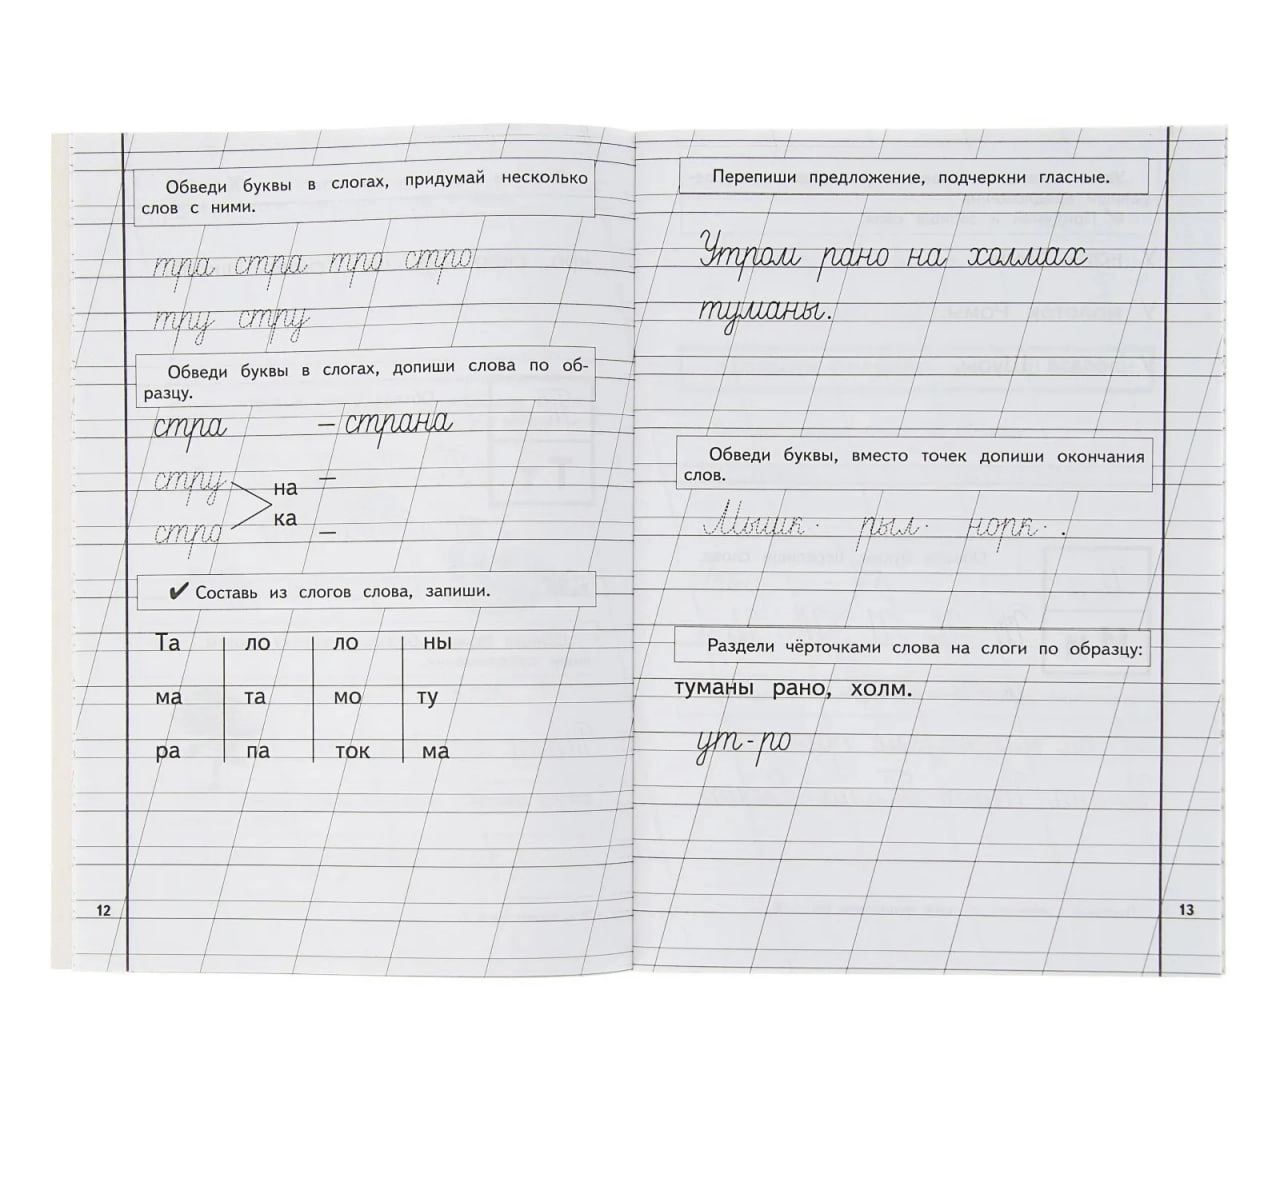 Обведи буквы в слогах, придумай несколько
слов с ними.
тра стра тро стро
тру стру
Обведи буквы в слогах, допиши слова по об-
разцу.
стра – страна
стру на –
стро ка –
✔ Составь из слогов слова, запиши.
Та ло ло ны
ма та мо ту
ра па ток ма
12
Перепиши предложение, подчеркни гласные.
Утром рано на холмах
туманы.
Обведи буквы, вместо точек допиши окончания
слов.
Мышк· рыл· норк· .
Раздели чёрточками слова на слоги по образцу:
туманы рано, холм.
ут-ро
13